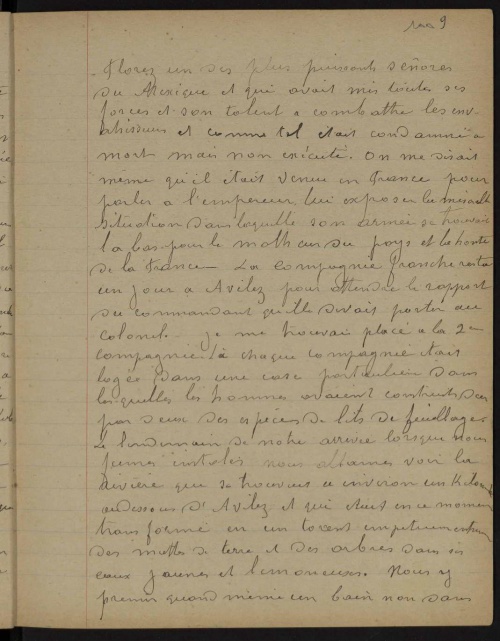 9
Florez un des plus puissants señores
du Mexique et qui avait mis toutes ses
forces et son talent a combattre les env-
ahisseurs et comme tel etait condamné a
mort mais non exécuté. On me disait
même qu'il était venu en France pour
parler a l'empereur, lui exposer la misérable
situation dans laquelle son armée se trouvait
la bas pour le malheur du pays et la honte
de la France — La compagnie Franche resta
un jour a Avilez pour attendre le rapport
du commandant qu'elle devait porter au
colonel. Je me trouvai placé a la 2e
compagnie, là chaque compagnie était
logée dans une case particulière dans
lesquelles les hommes avaient construits deux
par deux des espèces de lits de feuillage.
Le lendemain de notre arrivée lorsque nous
fumes installés nous allames voir la
rivière que se trouvait a environ un Kilom
audessous d'Avilez et qui était en ce moment
transformé en un torent impetueux
des mottes de terre et des arbres dans ses
eaux jaunes et limoneuses. Nous y
primes quand même un bain non sans